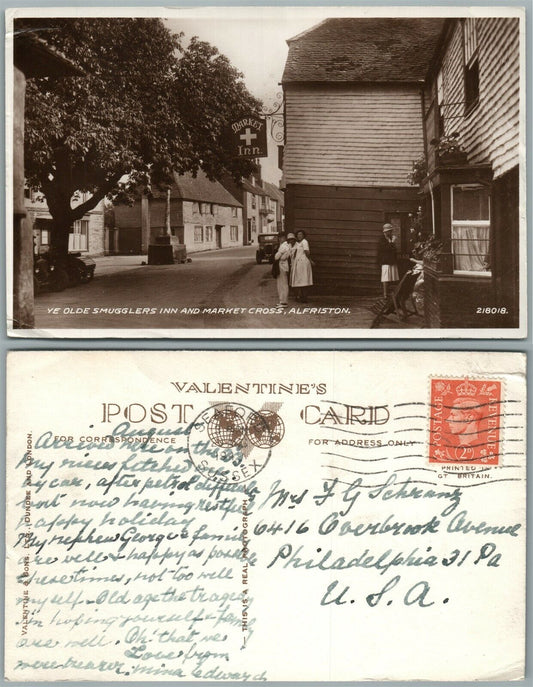 MARKET
Inn.
YE OLDE SMUGGLERS INN AND MARKET CROSS, ALFRISTON.
218018.
VALENTINE'S
POST CARD
FOR CORRESPONDENCE
FOR ADDRESS ONLY
POSTAGE
REVENUE
2D
PRINTED IN
GT BRITAIN.
SUSSEX
VALENTINE & SONS, LTD., DUNDEE AND LONDON.
THIS IS A REAL PHOTOGRAPH
August
Arrived here on the
my niece fetched me
by car, after petrol
but now having
happy holiday
My nephew George & family
are well & happy as possible
these times, not too well
myself. Old age the tragedy
in hoping yourself & family
are well. Oh that we
Love from
were nearer. Mina Edward
Mrs F G Schranz
6416 Overbrook Avenue
Philadelphia 31 Pa
U. S. A.